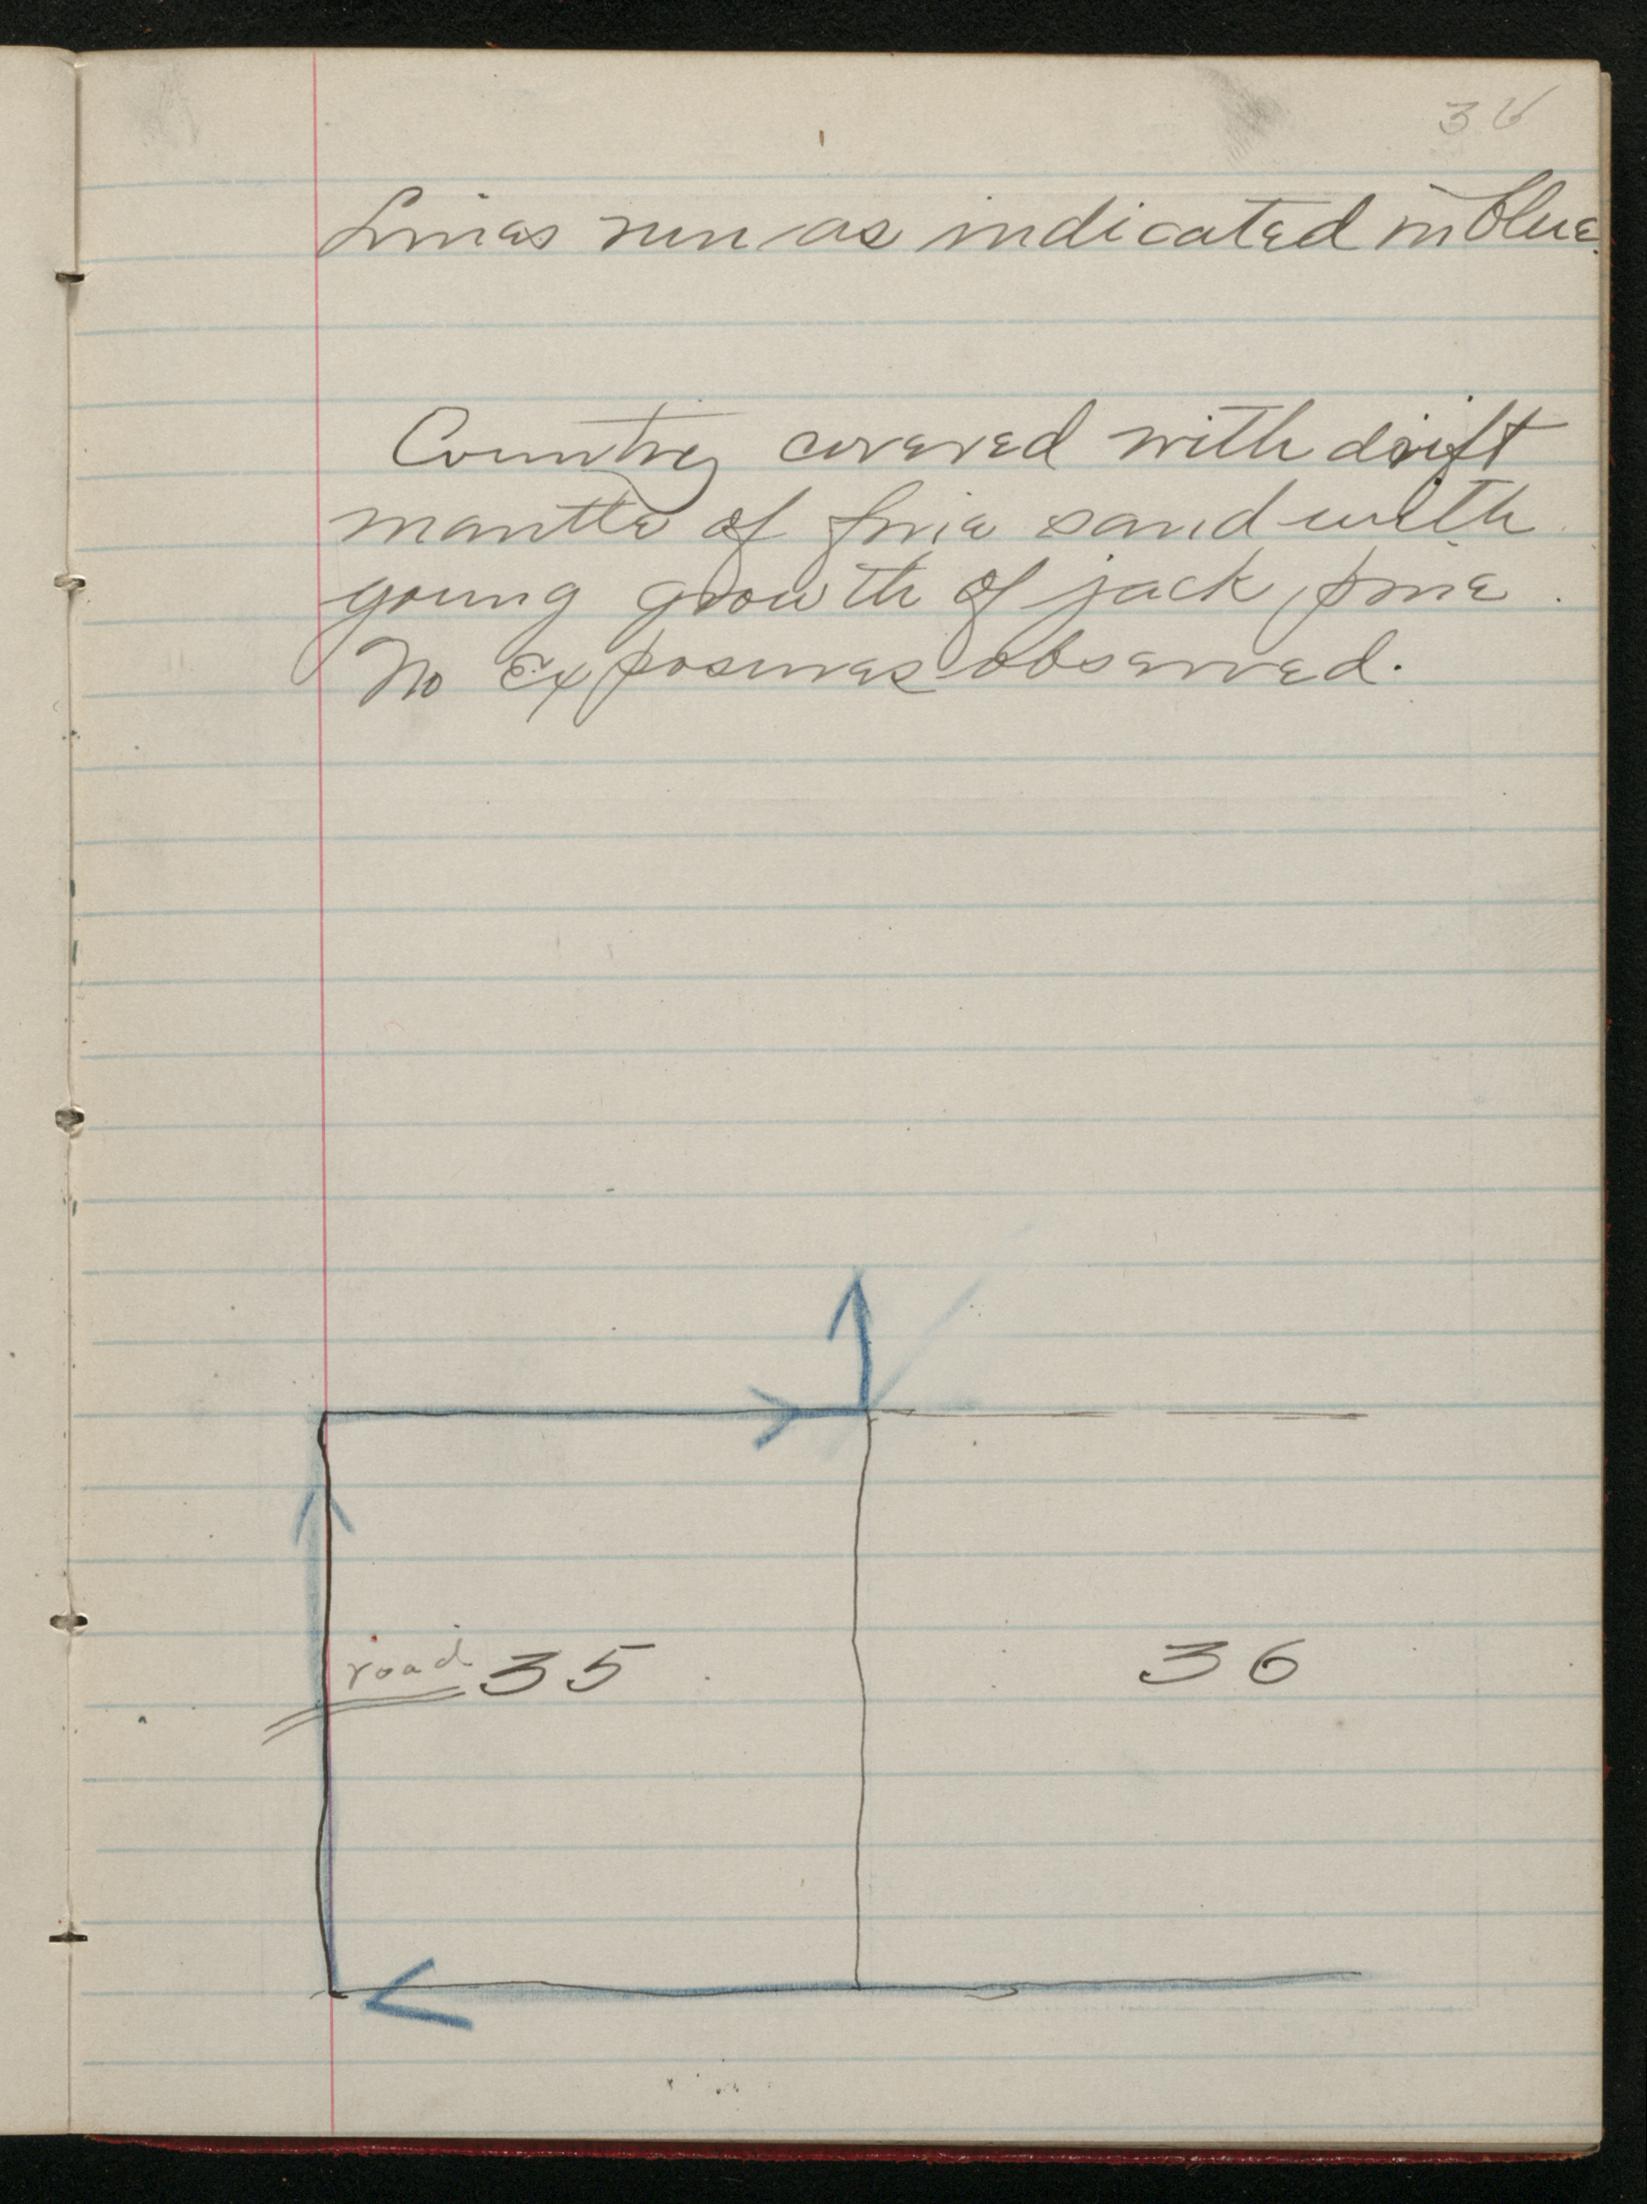 36
Lines run as indicated in blue.
Country covered with drift
mantle of fine sand with
young growth of jack pine.
No exposures observed.
road 35 36